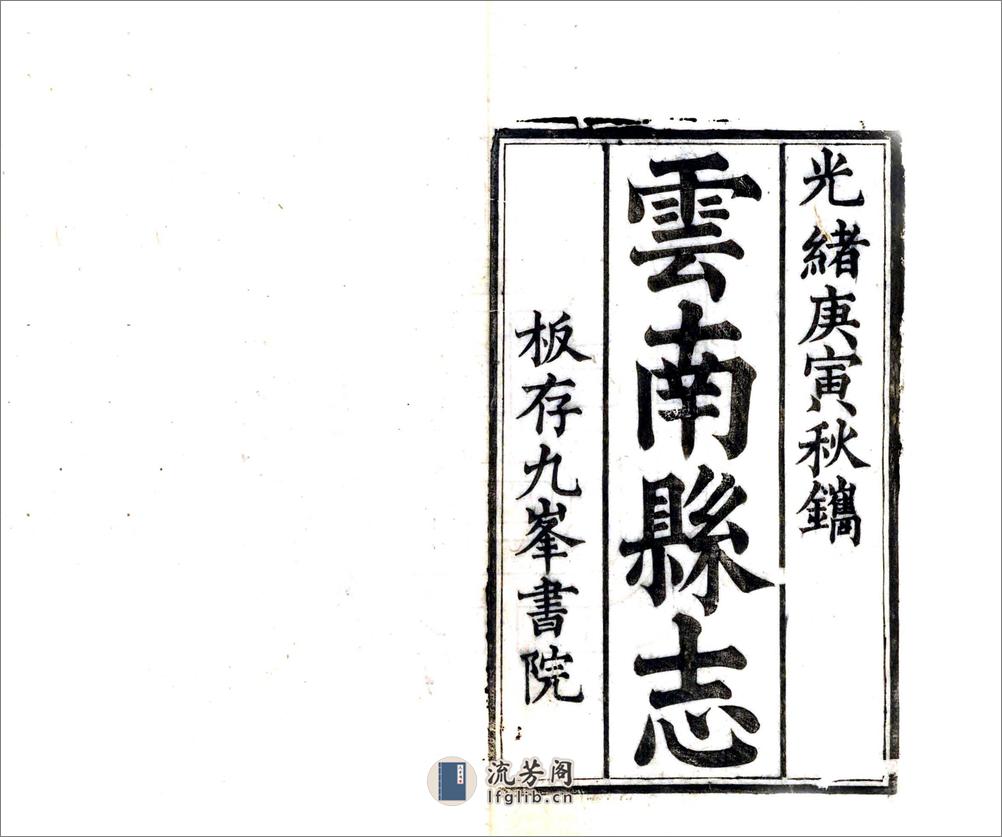 光緒庚寅秋鐫
雲南縣志
板存九峯書院
流芳阁
lfglib.cn